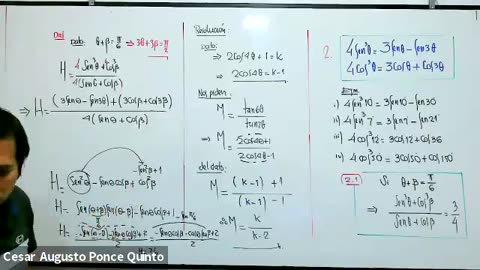 Dato: θ+β = π/6 ⇒ 3θ+3β = π/2
H = (4Sen³θ+4Cos³β)/(4(Senθ+Cosβ))
⇒ H = ((3Senθ-Sen3θ)+(3Cosβ+Cos3β))/(4(Senθ+Cosβ))
H = Sen²θ - SenθCosβ + Cos²β
-Sen²β+1
H = Sen(θ+β)Sen(θ-β) - SenθCosβ+1
Resolución:
Dato:
⇒ 2Cos4θ+1 = k
⇒ 2Cos4θ = k-1
Nos piden:
M = tan6θ/tan2θ
⇒ M = (2Cos4θ+1)/(2Cos4θ-1)
del dato:
M = ((k-1)+1)/((k-1)-1)
∴ M = k/(k-2)
2.
4Sen³θ = 3Senθ - Sen3θ
4Cos³θ = 3Cosθ + Cos3θ
Ejm:
i) 4Sen³10 = 3Sen10 - Sen30
ii) 4Sen³7 = 3Sen7 - Sen21
iii) 4Cos³12 = 3Cos12 + Cos36
iv) 4Cos³50 = 3Cos50 + Cos150
2.1
Si θ+β = π/6
⇒ (Sen³θ+Cos³β)/(Senθ+Cosβ) = 3/4
Cesar Augusto Ponce Quinto